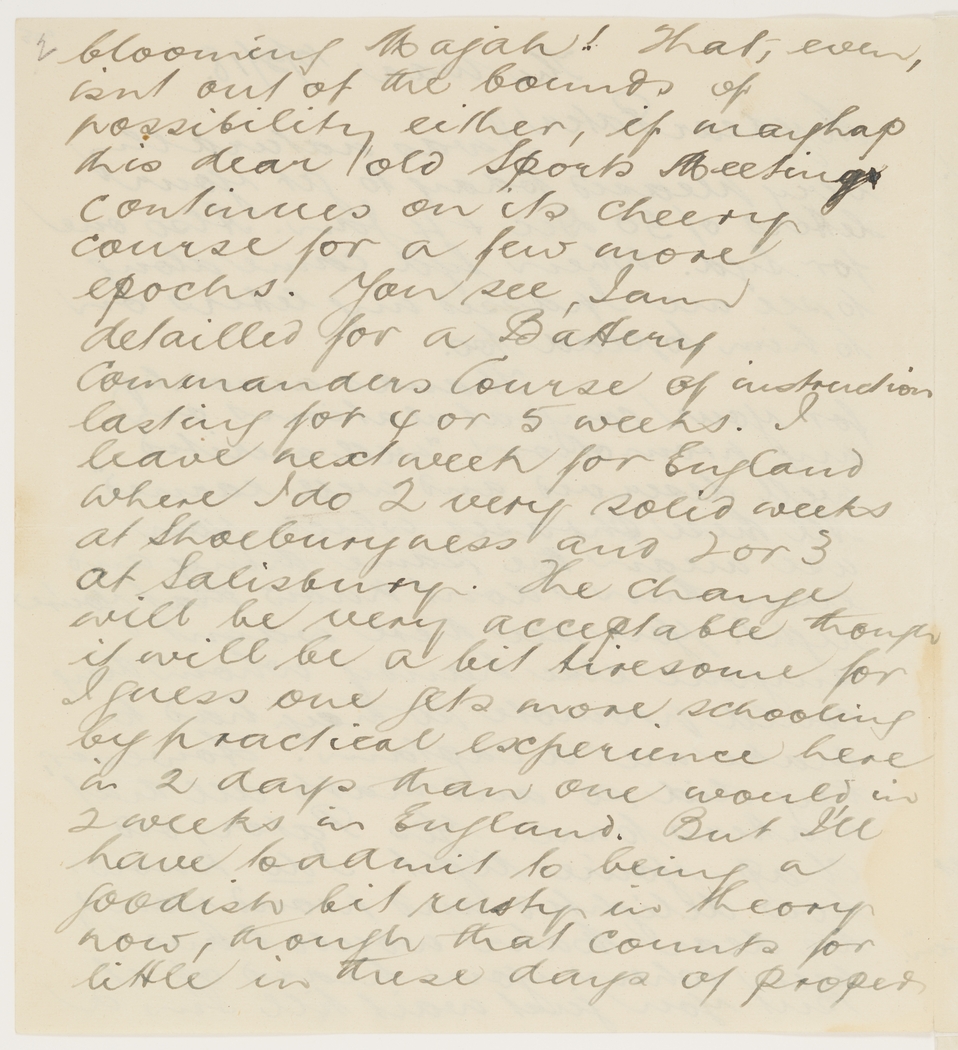 2 blooming Majah! That, even,
isnt out of the bounds of
possibility either, if mayhap
this dear old Sports Meeting
continues on its cheery
course for a few more
epochs. You see, I am
detailled for a Battery
Commanders Course of instruction
lasting for 4 or 5 weeks. I
leave next week for England
where I do 2 very solid weeks
at Shoeburyness and 2 or 3
at Salisbury. The change
will be very acceptable though
it will be a bit tiresome for
I guess one gets more schooling
by practical experience here
in 2 days than one would in
2 weeks in England. But I'll
have to admit to being a
goodish bit rusty in theory
now, though that counts for
little in these days of proper